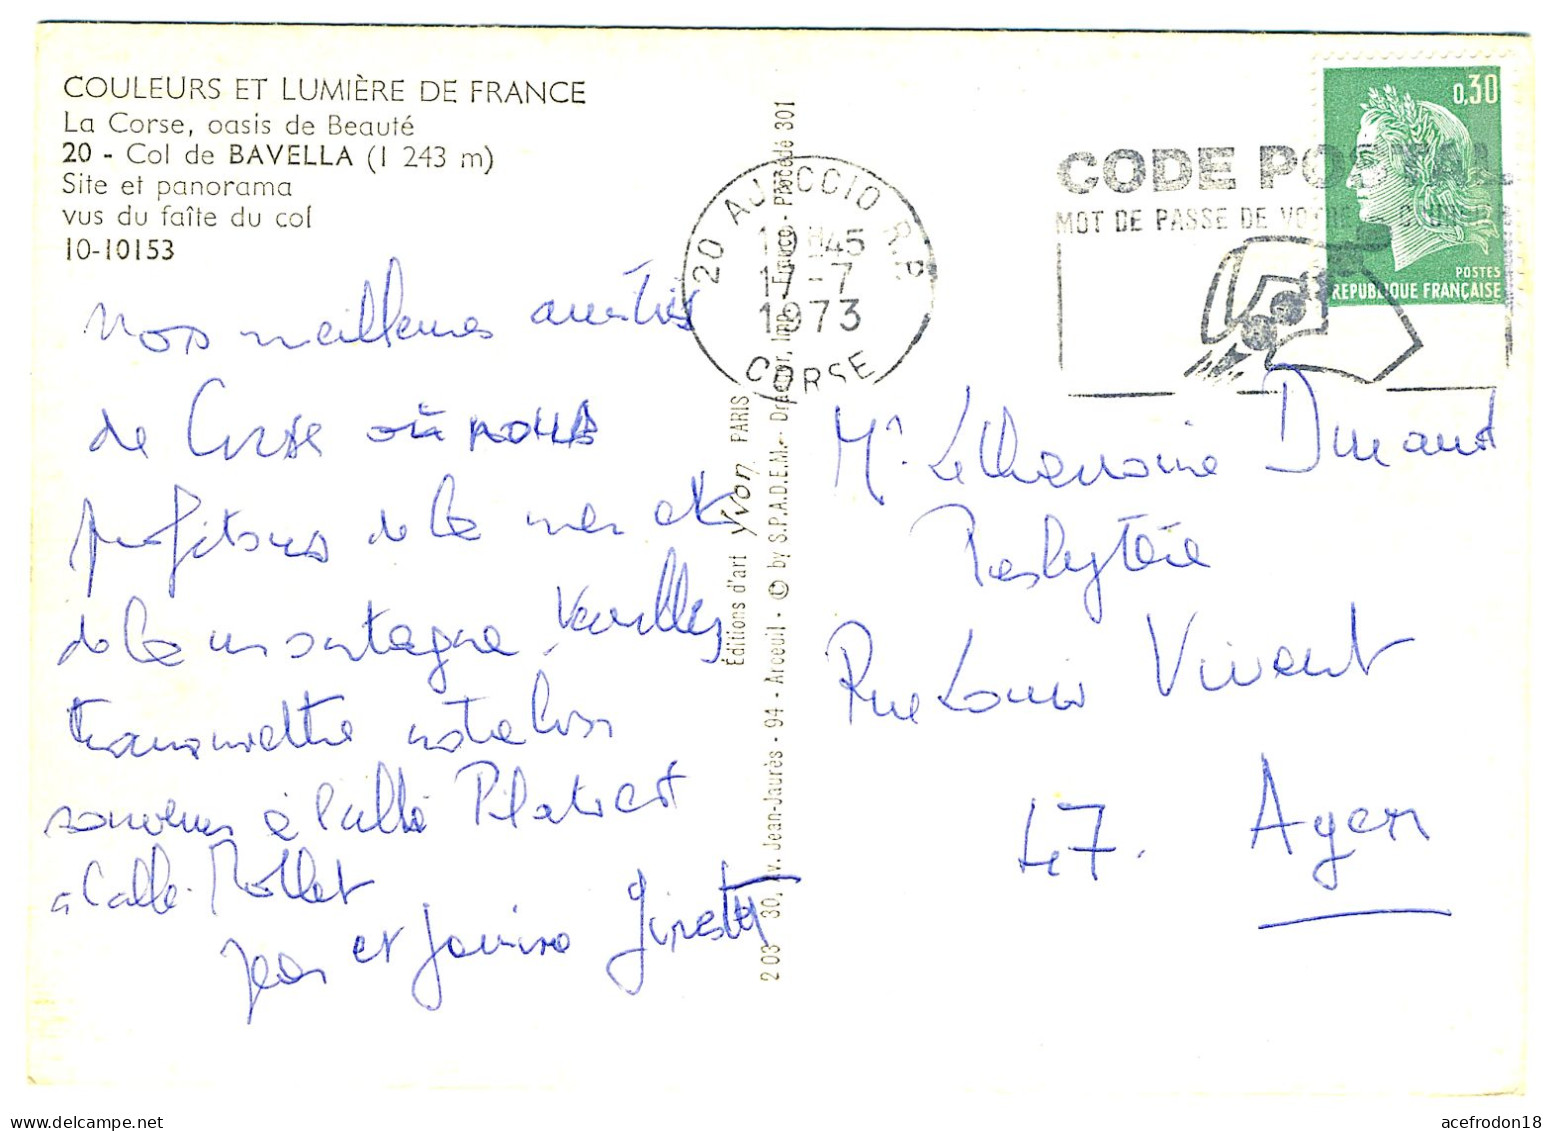 COULEURS ET LUMIÈRE DE FRANCE
La Corse, oasis de Beauté
20 - Col de BAVELLA (1 243 m)
Site et panorama
vus du faîte du col
10-10153
Nos meilleures amitiés
de Corse où nous
profitons de la mer et
de la montagne. Veuillez
transmettre notre bon
souvenir à l'abbé
à l'abbé Mollet
Jean et Janine
Éditions d'art yvon PARIS
203 - 30, Av. Jean-Jaurès - 94 - Arcueil - © by S.P.A.D.E.M. - Draeger, Imp. - France - Procédé 301
20 AJACCIO R.P.
17-7
1973
CORSE
CODE POSTAL
MOT DE PASSE DE VOTRE COURRIER
0,30
POSTES
REPUBLIQUE FRANÇAISE
Mr. Le Chanoine Durand
Presbytère
Rue Louis Vivent
47. Agen
acefrodon18